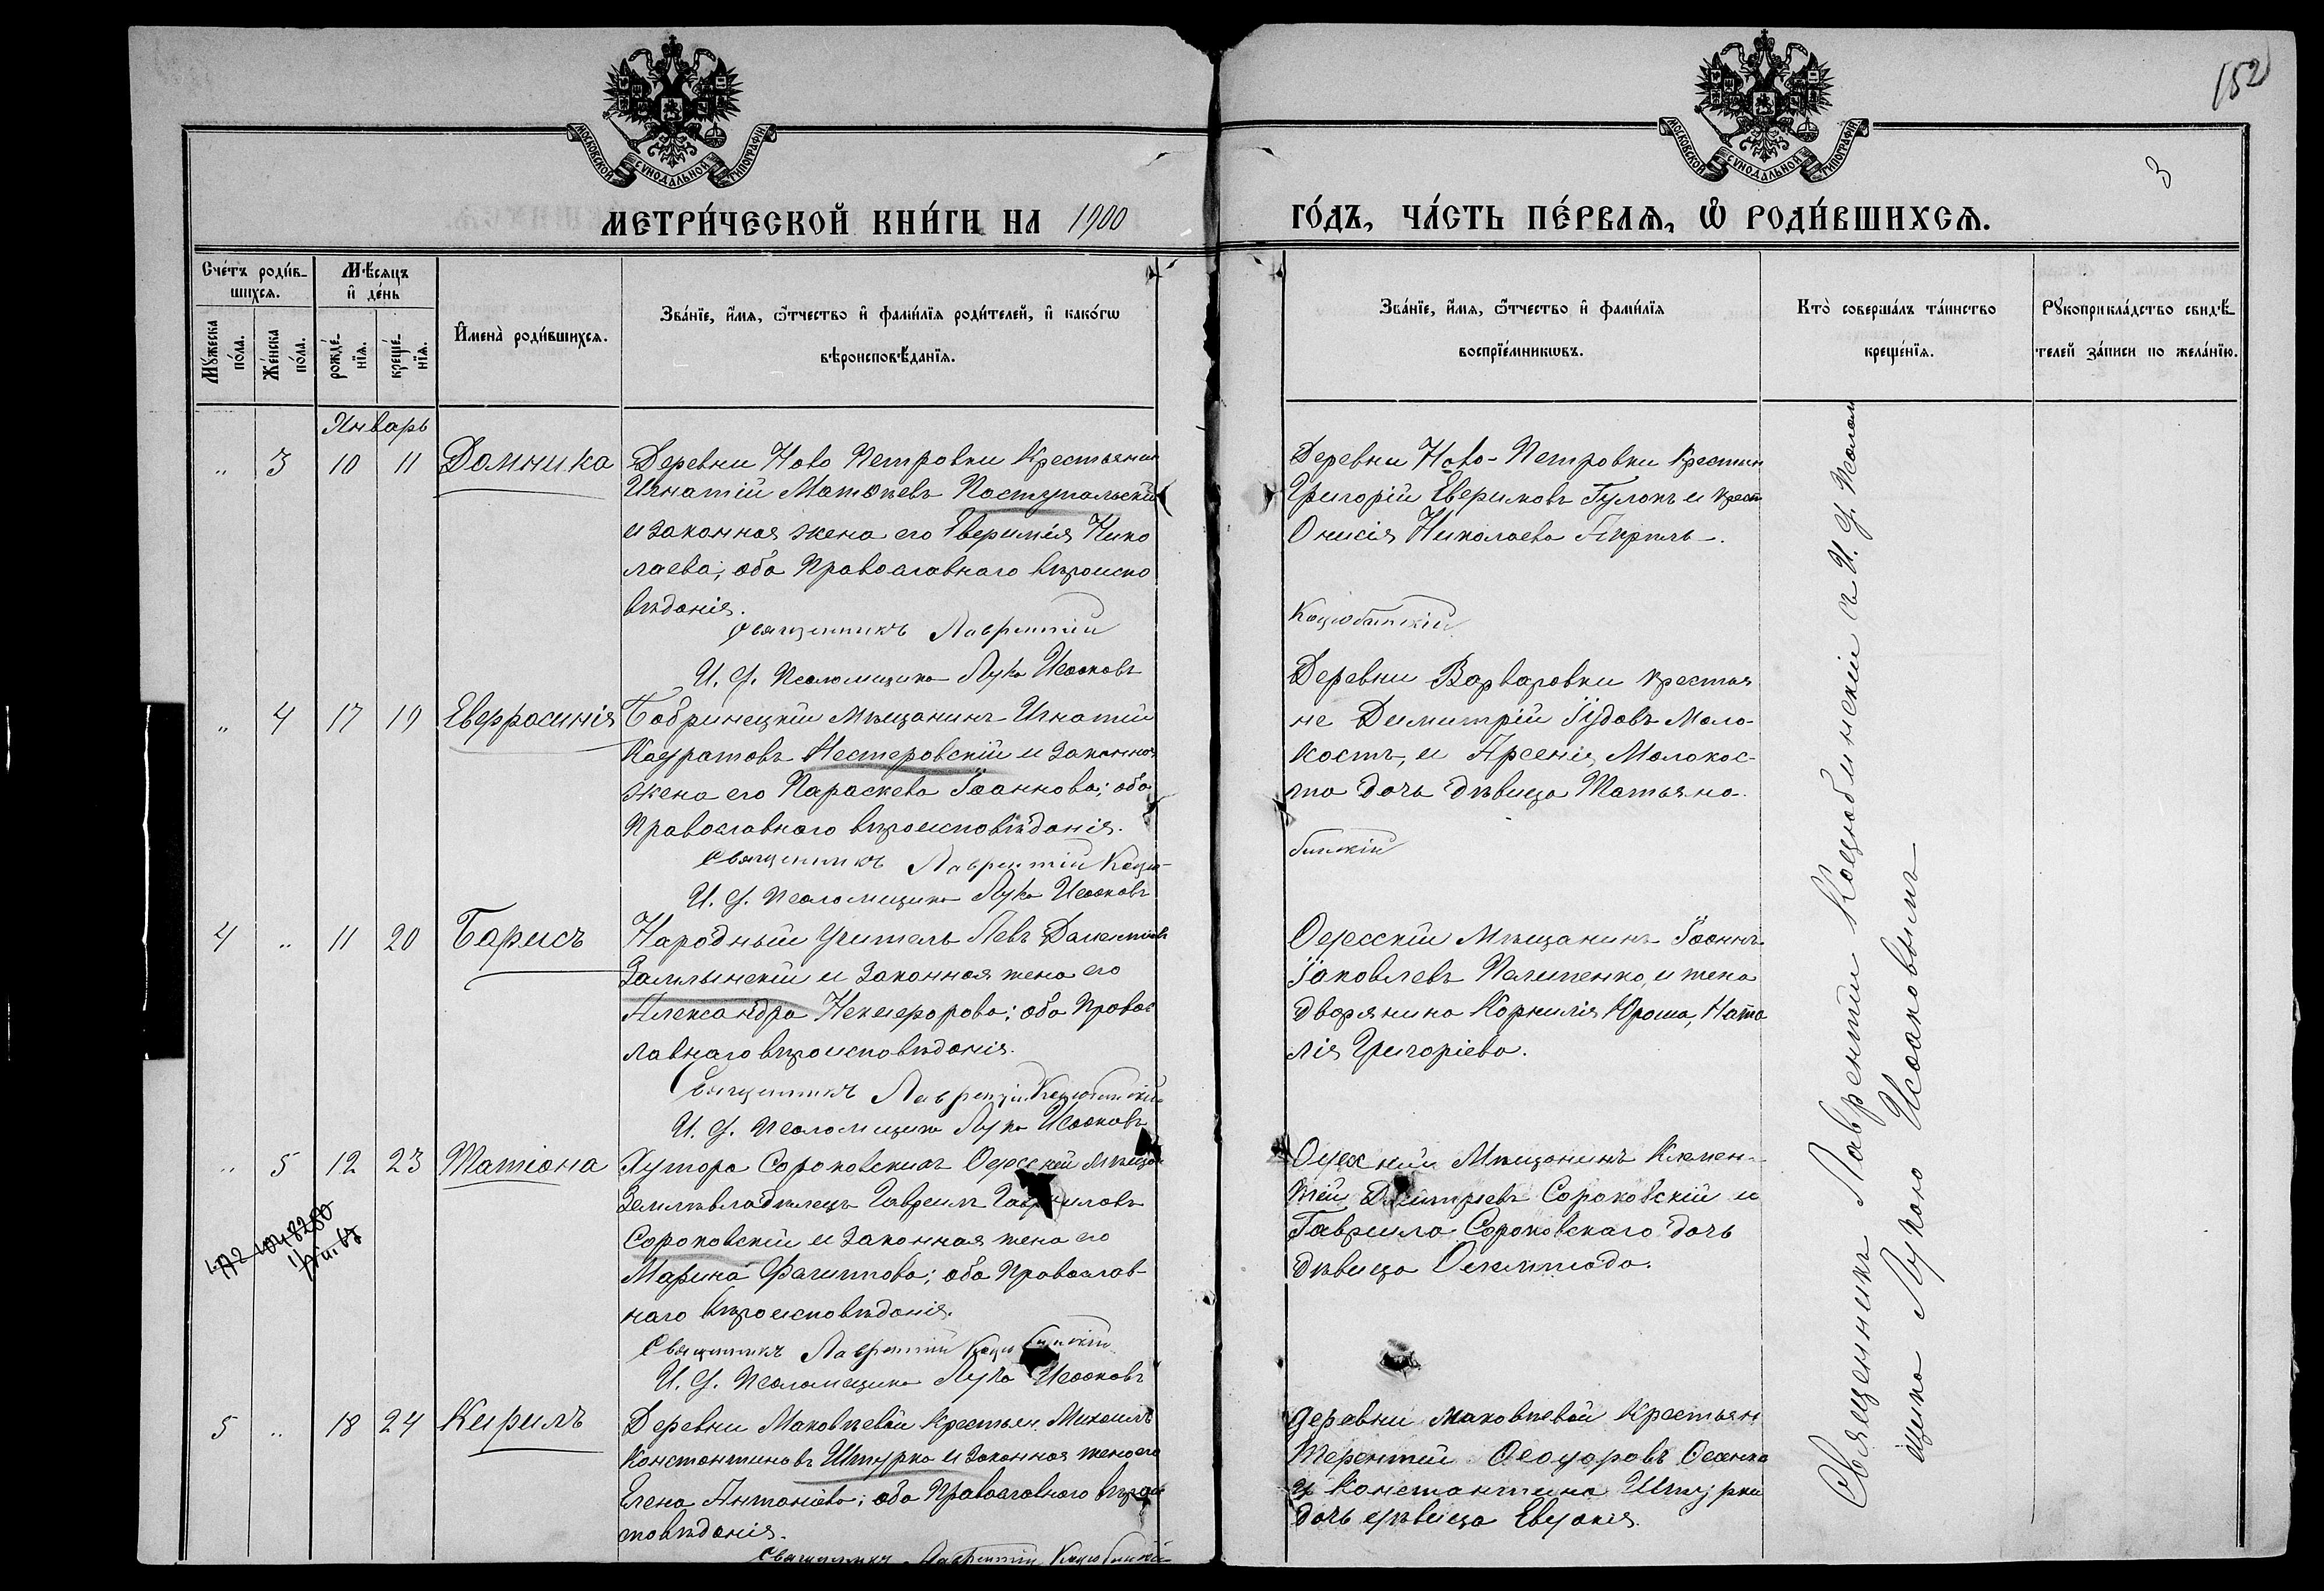 152
3
МОСКОВСКОЙ СУНОДАЛЬНОЙ ТИПОГРАФІИ
МОСКОВСКОЙ СУНОДАЛЬНОЙ ТИПОГРАФІИ
МЕТРИ́ЧЕСКОЙ КНИ́ГИ НА 1900
ГО́ДЪ, ЧА́СТЬ ПЕ́РВАѦ, Ѡ҆ РОДИ́ВШИХСѦ.
Сче́тъ роди́в-
шихсѧ.
Мѣ́сѧцъ
и҆ де́нь
Мꙋ́жеска по́ла.
Же́нска по́ла.
рожде́-
нїѧ.
креще́-
нїѧ.
И҆мена̀ роди́вшихсѧ.
Зва́нїе, и҆́мѧ, ѻ҆́тчество и҆ фами́лїѧ роди́телей, и҆ како́гѡ
вѣроисповѣ́данїѧ.
Зва́нїе, и҆́мѧ, ѻ҆́тчество и҆ фами́лїѧ
воспрїе́мникѡвъ.
Кто̀ соверша́лъ та́инство
креще́нїѧ.
Рꙋкоприкла́дство свидѣ́-
телей за́писи по жела́нїю.
Январь
" 3 10 11 Домника
Деревни Ново Петровки Крестьянин
Игнатій Матѳіевъ Постутальскій
и законная жена его Евфимія Нико
лаева; оба Православнаго вѣроиспо
вѣданія.
Священникъ Лаврентій
И. д. Псаломщика Лука Исаковъ
Деревни Ново-Петровки крестьян
Григорій Евфимовъ Гулокъ и крест
Онисія Николаева
Коцюбинскій
" 4 17 19 Евфросинія
Бобринецкій Мѣщанинъ Игнатій
Кодратовъ Нестеровскій и законная
жена его Параскева Іоаннова; оба
Православнаго вѣроисповѣданія.
Священникъ Лаврентій Коцю-
И. д. Псаломщика Лука Исаковъ
Деревни Варваровки крестья
не Димитрій Іудовъ Моло-
костъ, и Арсенія Молокос-
та дочь дѣвица Татьяна.
бинскій
4 " 11 20 Борисъ
Народный Учитель Левъ Дометіевъ
и законная жена его
Александра Никифорова; оба Правос
лавнаго вѣроисповѣданія.
Священникъ Лаврентій Коцюбинскій
И. д. Псаломщика Лука Исаковъ
Одесскій Мѣщанинъ Іоаннъ
Іаковлевъ Пилипенко, и жена
дворянина Корнилія Юроша, Ната
лія Григоріева.
" 5 12 23 Татіана
Хутора Сороковскихъ Одесскій Мѣщан
Землевладѣлецъ Гавріилъ Гавриловъ
Сороковскій и законная жена его
Марина Филиппова; оба Православ-
наго вѣроисповѣданія.
Священникъ Лаврентій Коцюбинскій
И. д. Псаломщика Лука Исаковъ
Одесскій Мѣщанинъ Климен-
тій Димитріевъ Сороковскій и
Гавриила Сороковскаго дочь
дѣвица Олимпіада.
5 " 18 24 Кирилъ
Деревни Маковѣевой Крестьян Михаилъ
Константиновъ Штурко и законная жена его
Елена Антоніева; оба Православнаго вѣрои
повѣданія.
Священникъ Лаврентій Коцюбинскій
деревни Маковѣевой Крестьян
Терентій Ѳеодоровъ
и Константина Штурки
дочь дѣвица Евдокія.
Священникъ Лаврентій Коцюбинскій съ И. д. Псалом
щика Лукою Исаковымъ